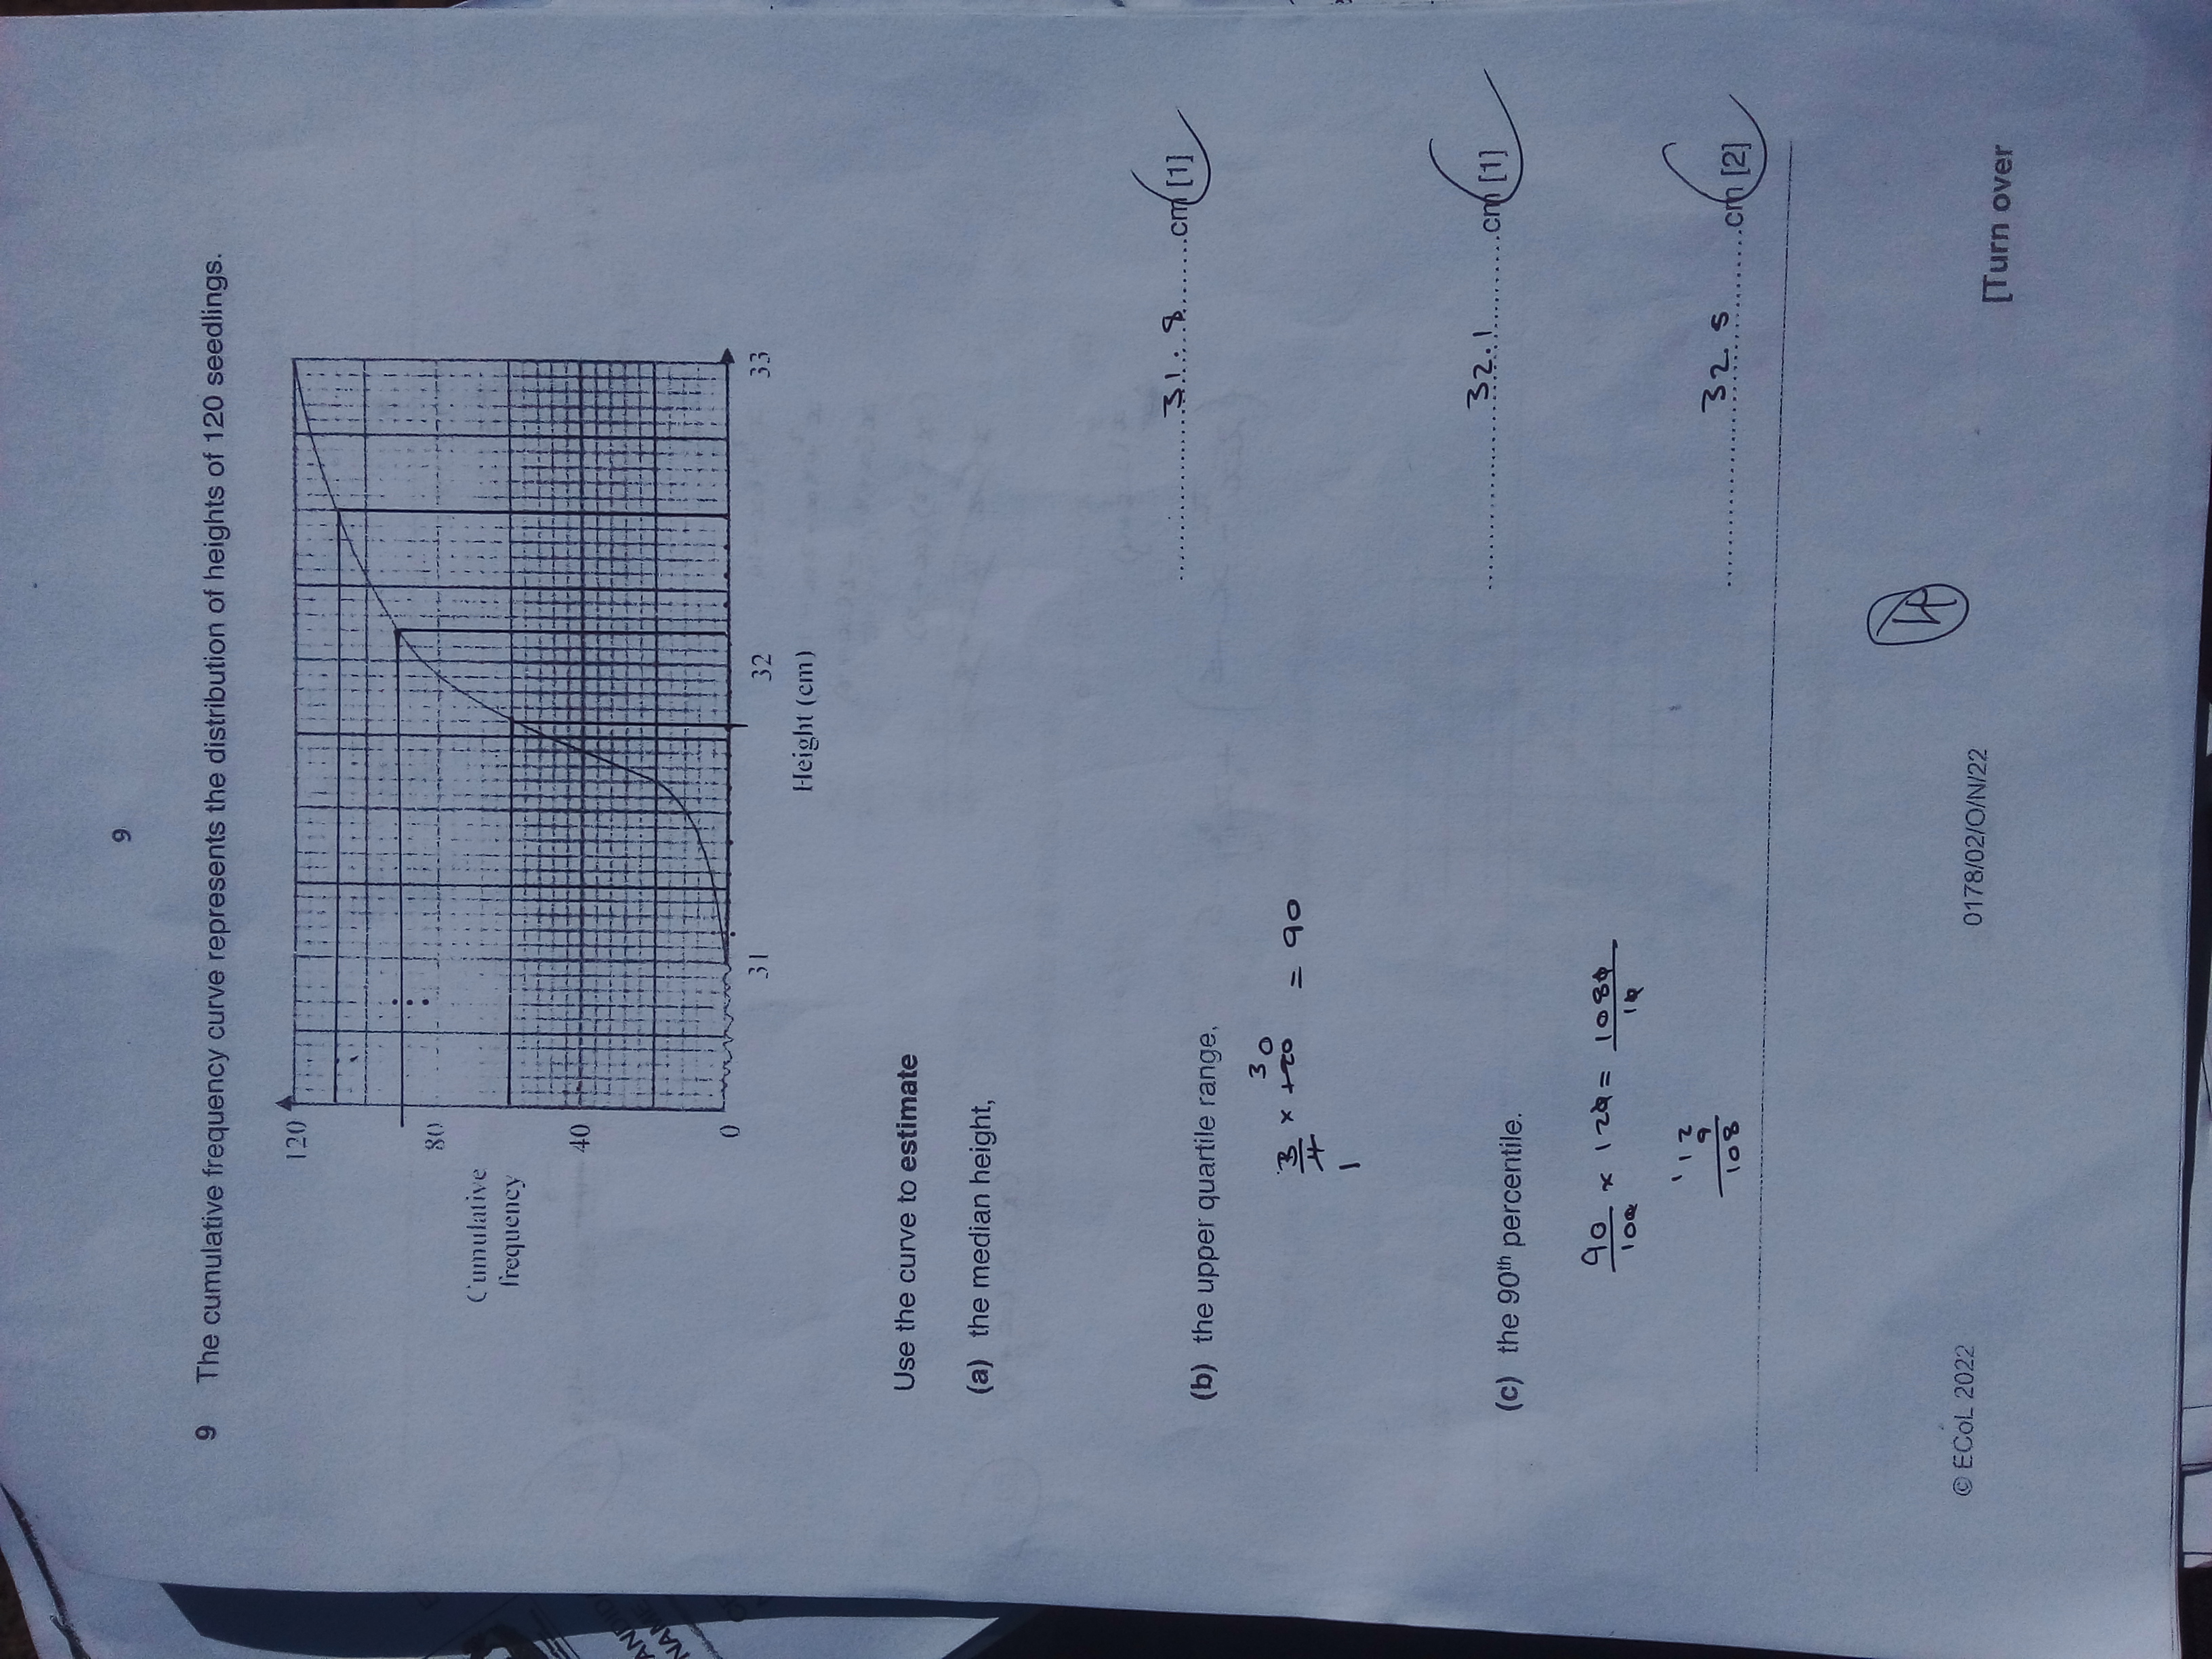 9
9 The cumulative frequency curve represents the distribution of heights of 120 seedlings.
120
80
Cumulative
frequency
40
0
31 32 33
Height (cm)
Use the curve to estimate
(a) the median height,
31.8 cm [1]
(b) the upper quartile range,
30
3/4 × 120 = 90
1
32.1 cm [1]
(c) the 90th percentile.
90/100 × 120 = 1080/10
112
9
108
32.5 cm [2]
4
© ECoL 2022
0178/02/O/N/22
[Turn over